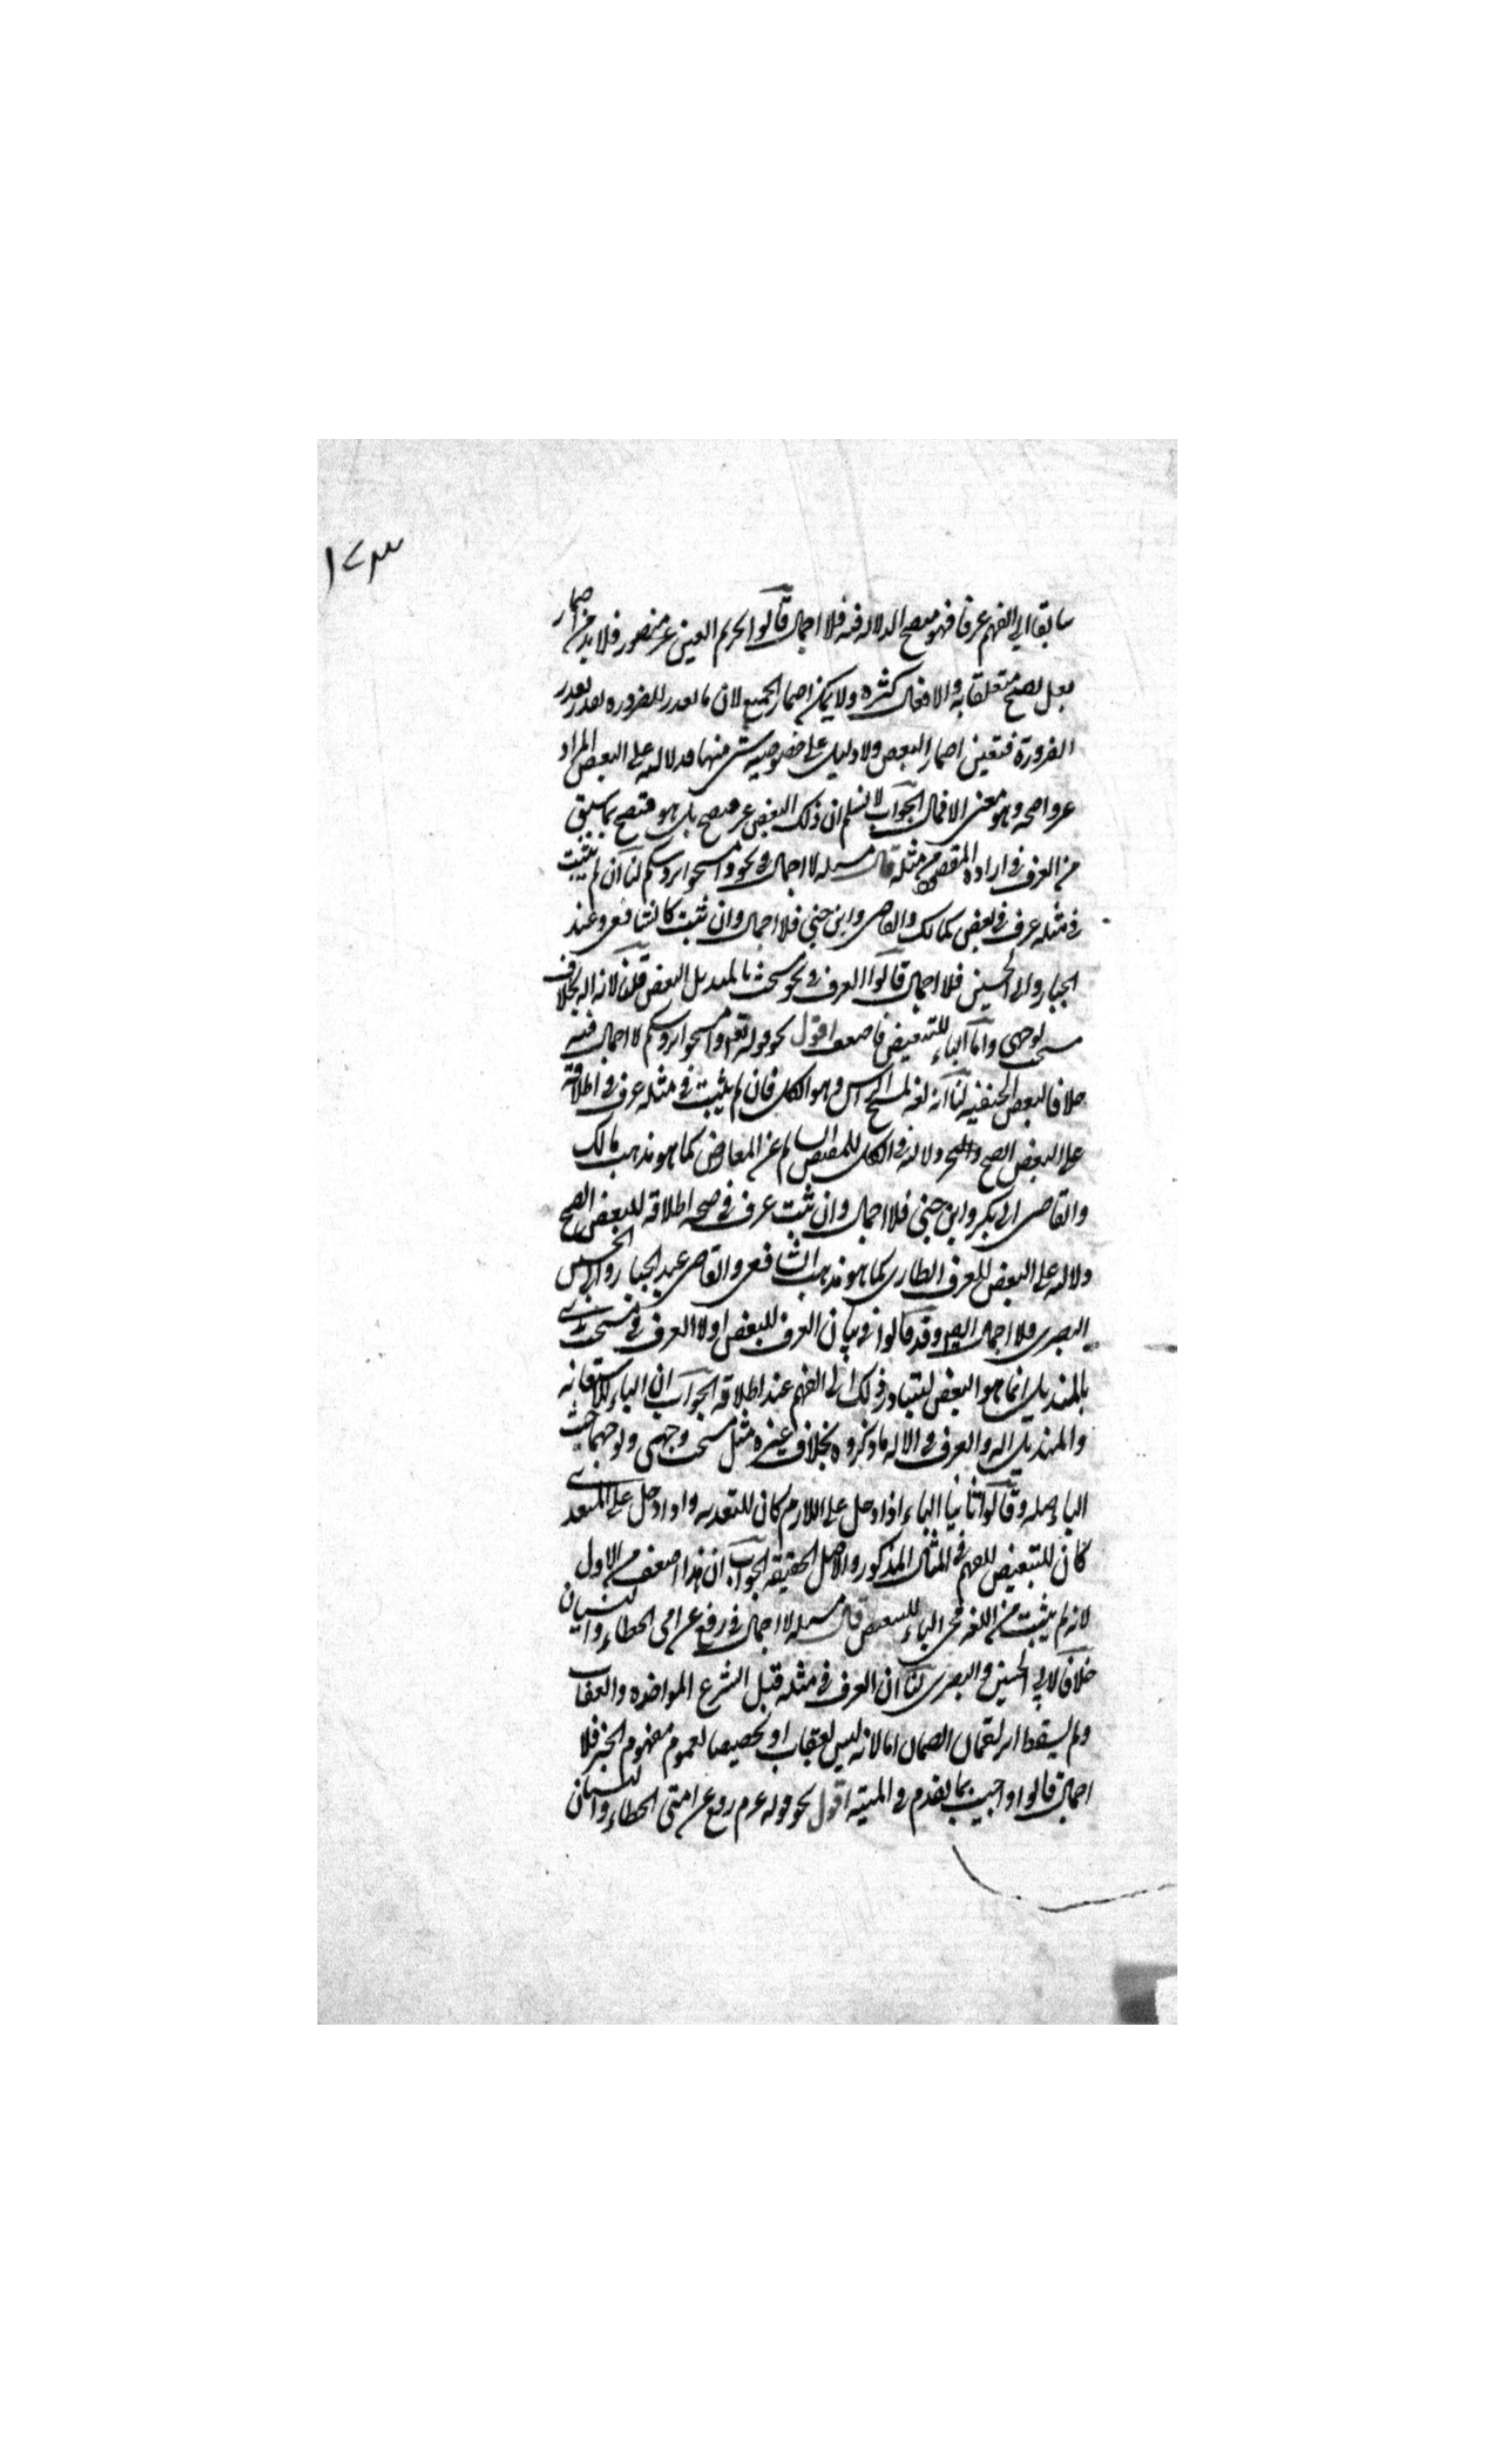 ١٧٣
سابقا الى الفهم عرفا فهو متضح الدلالة فيه فلا اجمال قالوا تحريم العين غير متصور فلا بد من اضمار
فعل يصح متعلقا به والافعال كثيرة ولا يمكن اضمار الجميع لان ما يقدر للضرورة يقدر بقدر
الضرورة فتعين اضمار البعض ولا دليل على خصوصية شئ منها فدلالته على البعض المراد
غير واضحة وهو معنى الاجمال الجواب لا نسلم ان ذلك البعض غير متضح بل هو متضح بما سبق
من العرف في ارادة المقصود من مثله قال مسئلة لا اجمال في نحو وامسحوا برؤسكم لنا ان لم يثبت
في مثله عرف في بعض كمالك والقاضي وابن جني فلا اجمال وان ثبت كالشافعي وعبد
الجبار وابي الحسين فلا اجمال قالوا العرف في نحو مسحت بالمنديل البعض قلنا لانه آلة بخلاف
مسحت بوجهي واما الباء للتبعيض فاضعف اقول نحو قوله تعالى وامسحوا برؤسكم لا اجمال فيه
خلافا لبعض الحنفية لنا انه لغة لمسح الرأس وهو الكل فان لم يثبت في مثله عرف في اطلاقه
على البعض اتضح دلالته في الكل للمقتضي السالم عن المعارض كما هو مذهب مالك
والقاضي ابي بكر وابن جني فلا اجمال وان ثبت عرف في صحة اطلاقه للبعض اتضح
دلالته على البعض للعرف الطاري كما هو مذهب الشافعي والقاضي عبد الجبار وابي الحسين
البصري فلا اجمال ايضا وقد قالوا في بيان العرف للبعض اولا العرف في مسحت يدي
بالمنديل انما هو البعض لتبادر ذلك الى الفهم عند اطلاقه الجواب ان الباء للاستعانة
والمنديل آلة والعرف في الآلة ما ذكروه بخلاف غيره مثل مسحت وجهي وبوجهي حيث
الباء صلة وقالوا ثانيا الباء اذا دخل على اللازم كان للتعدية واذا دخل على المتعدي
كان للتبعيض للفهم في المثال المذكور والاصل الحقيقة الجواب ان هذا اضعف من الاول
لانه لم يثبت من اللغة مجئ الباء للتبعيض قال مسئلة لا اجمال في رفع عن امتي الخطاء والنسيان
خلافا لابي الحسين والبصري لنا ان العرف في مثله قبل الشرع المواخذة والعقاب
ولم يسقط الضمان اما لانه ليس بعقاب او تخصيصا لعموم مفهوم الخبر فلا
اجمال قالوا واجيب بما تقدم في الميتة اقول نحو قوله عم رفع عن امتي الخطاء والنسيان